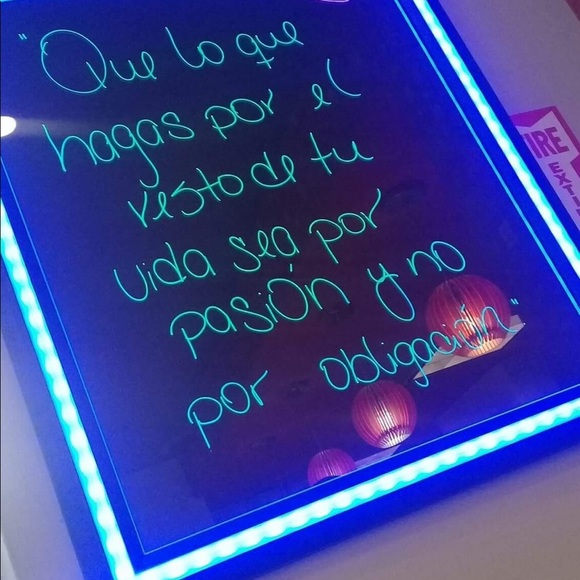 "Que lo que
hagas por el
resto de tu
vida sea por
pasión y no
por obligación"
FIRE